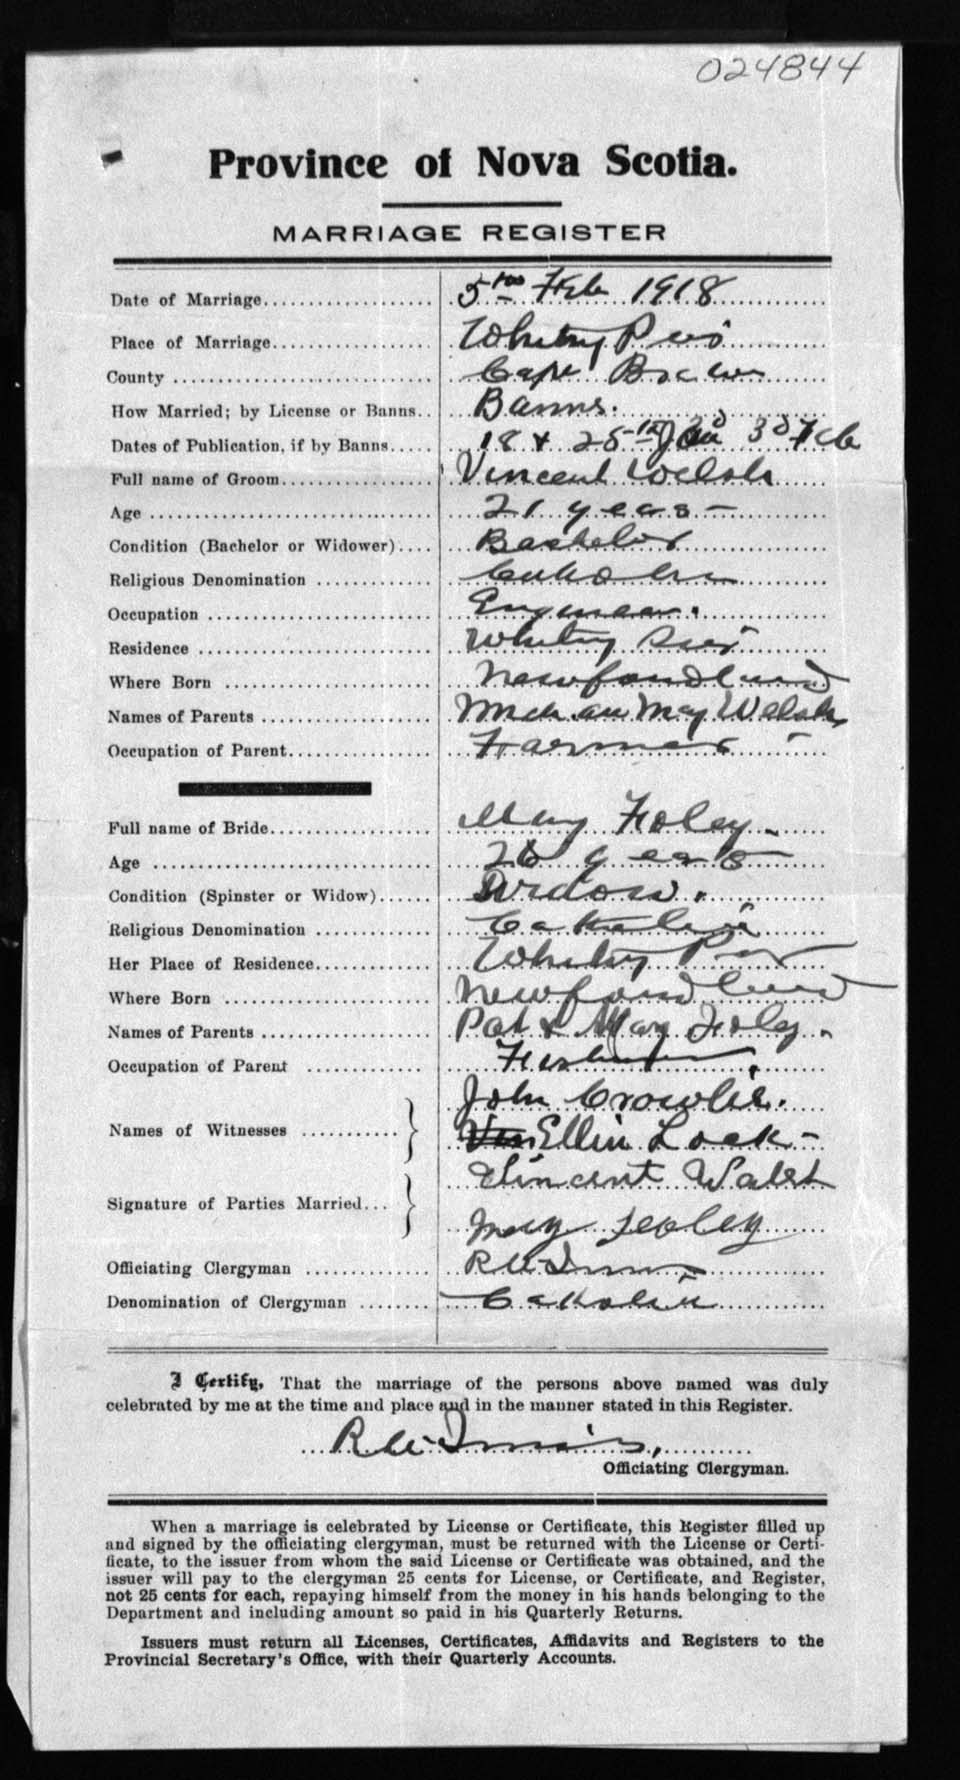 024844
Province of Nova Scotia.
MARRIAGE REGISTER
Date of Marriage 5th Feb 1918
Place of Marriage Whitney Pier
County Cape Breton
How Married; by License or Banns Banns.
Dates of Publication, if by Banns 18 & 25th Jan 3d Feb
Full name of Groom Vincent Welsh
Age 21 years
Condition (Bachelor or Widower) Bachelor
Religious Denomination Catholic
Occupation Engineer.
Residence Whitney Pier
Where Born Newfoundland
Names of Parents May Welsh
Occupation of Parent Farmer
Full name of Bride Mary Foley
Age 26 years
Condition (Spinster or Widow) Widow.
Religious Denomination Catholic
Her Place of Residence Whitney Pier
Where Born Newfoundland
Names of Parents Pat & Mary Foley.
Occupation of Parent Fisherman.
Names of Witnesses John Crowlie.
Ellin Lock
Signature of Parties Married Vincent Walsh
Mary Feoley
Officiating Clergyman
Denomination of Clergyman Catholic
I Certify, That the marriage of the persons above named was duly
celebrated by me at the time and place and in the manner stated in this Register.
Officiating Clergyman.
When a marriage is celebrated by License or Certificate, this Register filled up
and signed by the officiating clergyman, must be returned with the License or Certi-
ficate, to the issuer from whom the said License or Certificate was obtained, and the
issuer will pay to the clergyman 25 cents for License, or Certificate, and Register,
not 25 cents for each, repaying himself from the money in his hands belonging to the
Department and including amount so paid in his Quarterly Returns.
Issuers must return all Licenses, Certificates, Affidavits and Registers to the
Provincial Secretary's Office, with their Quarterly Accounts.